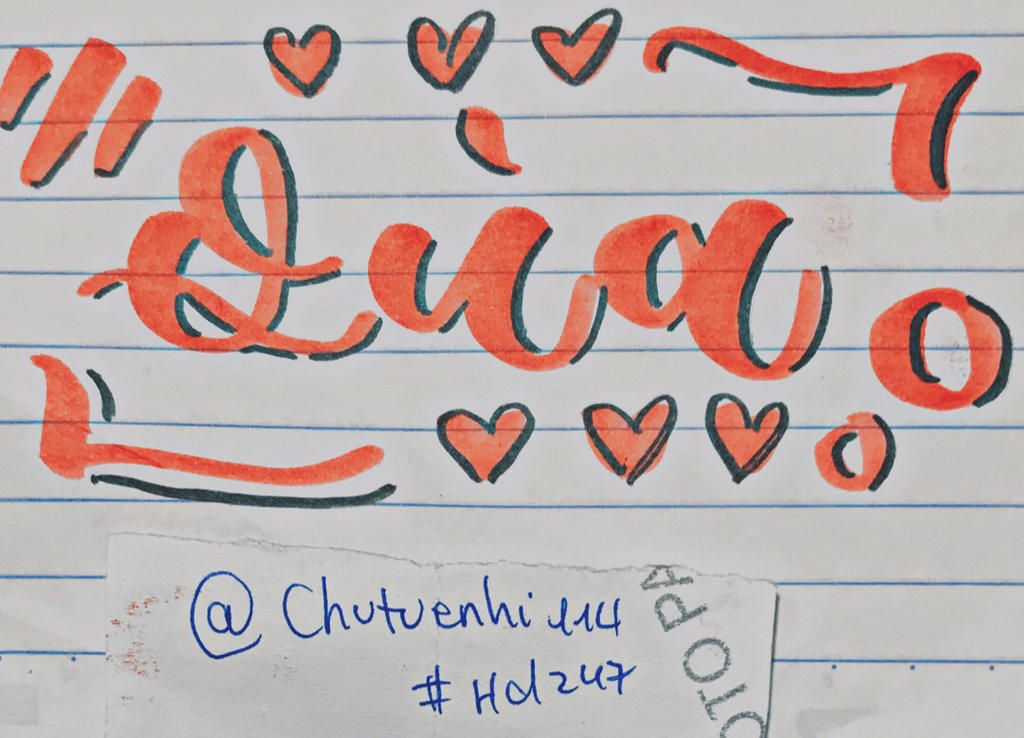 Qùa
@Chutuenhi114
#Hd247
OTO PA